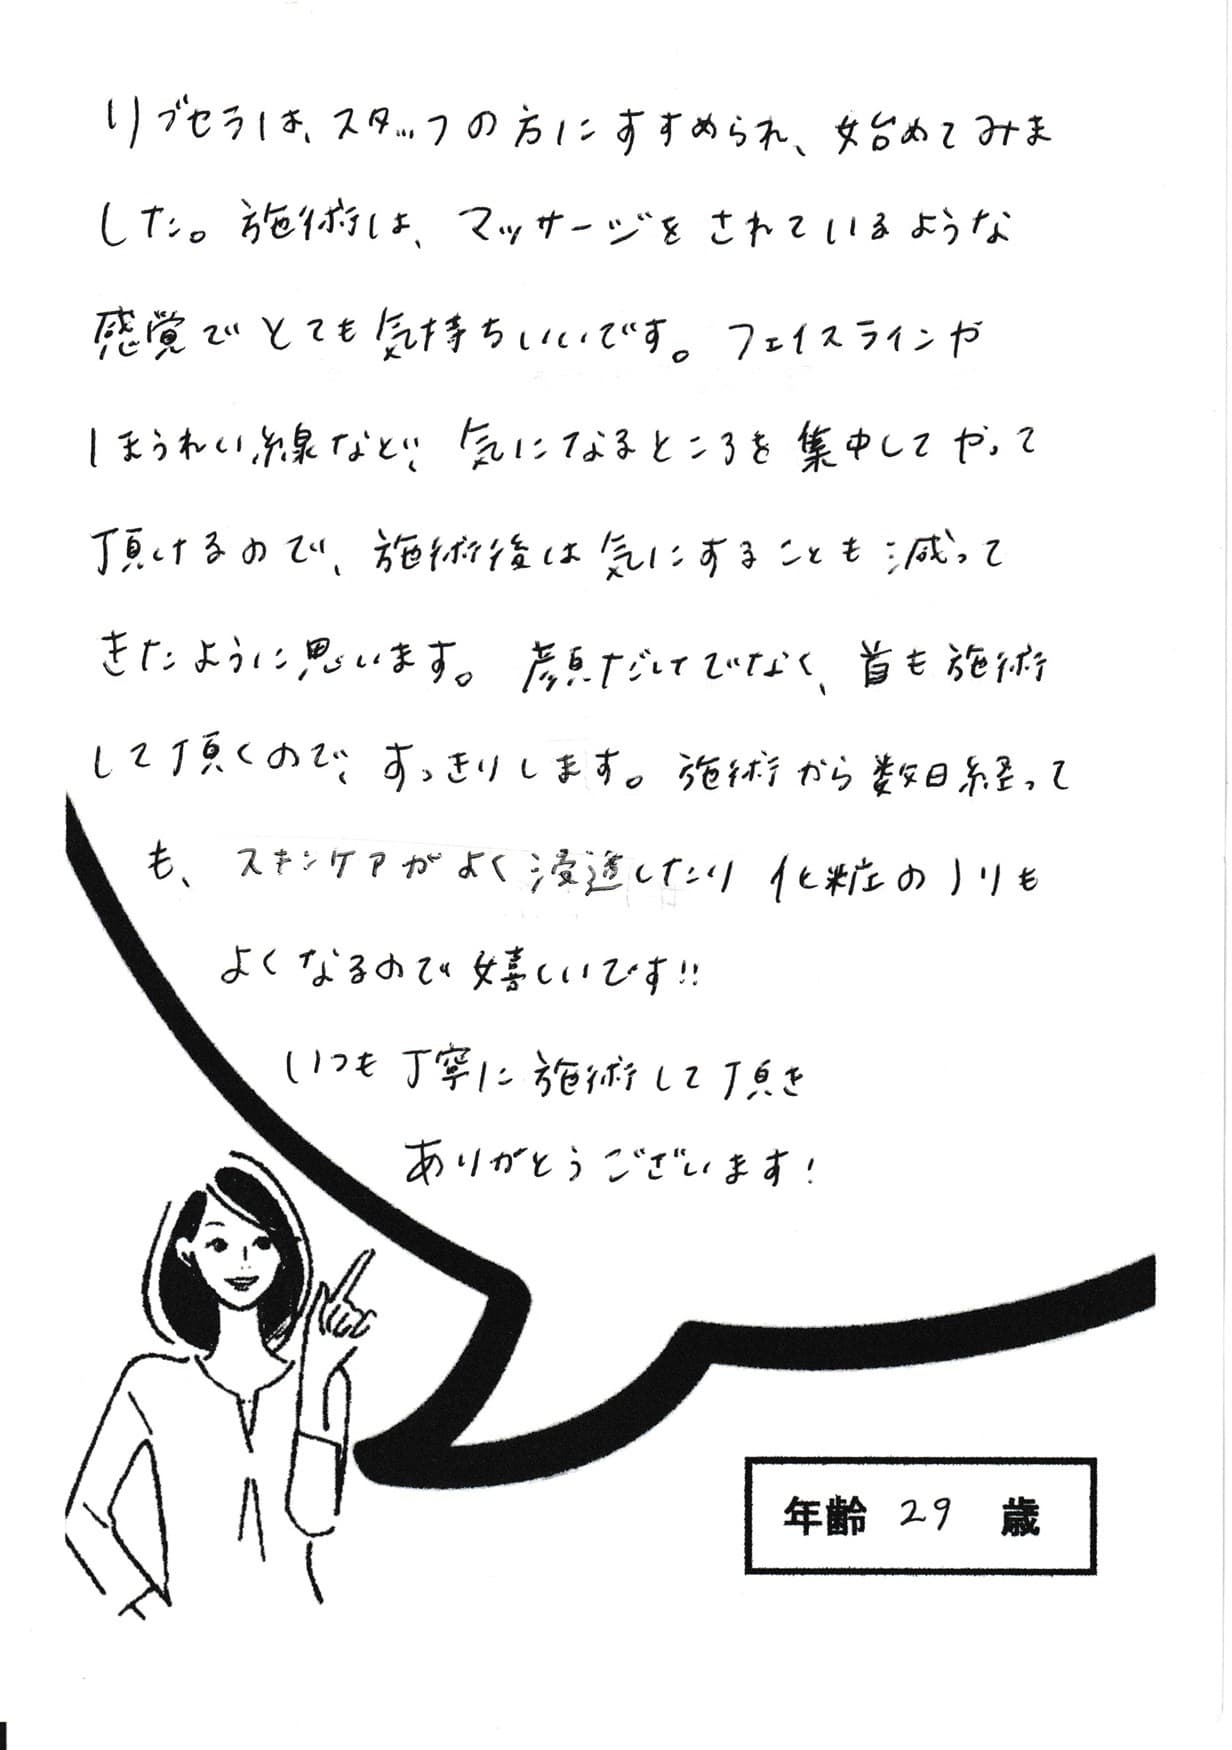 リブセラは、スタッフの方にすすめられ、始めてみま
した。施術は、マッサージをされているような
感覚でとても気持ちいいです。フェイスラインや
ほうれい線など、気になるところを集中してやって
頂けるので、施術後は気にすることも減って
きたように思います。顔だけでなく、首も施術
して頂くので、すっきりします。施術から数日経って
も、スキンケアがよく浸透したり化粧のノリも
よくなるので嬉しいです!!
いつも丁寧に施術して頂き
ありがとうございます!
年齢 29 歳